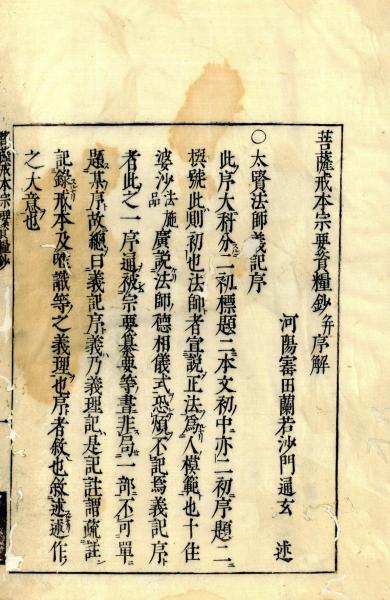 菩薩戒本宗要資糧鈔并序解
河陽霱田蘭若沙門通玄 述
○太賢法師義記序
此序大科分二初標題二本文初中亦二初序題二
撰號此則初也法師者宣説正法爲人模範也十住
婆沙法施品廣説法師德相儀式恐煩不記焉義記序
者此之一序通彼宗要纂要等書非局一部不可單
題某序故總曰義記序義乃義理記是記註謂疏註
記錄戒本及唯識等之義理也序者敘也敘述述作
之大意也
菩薩戒本宗要資糧鈔
一